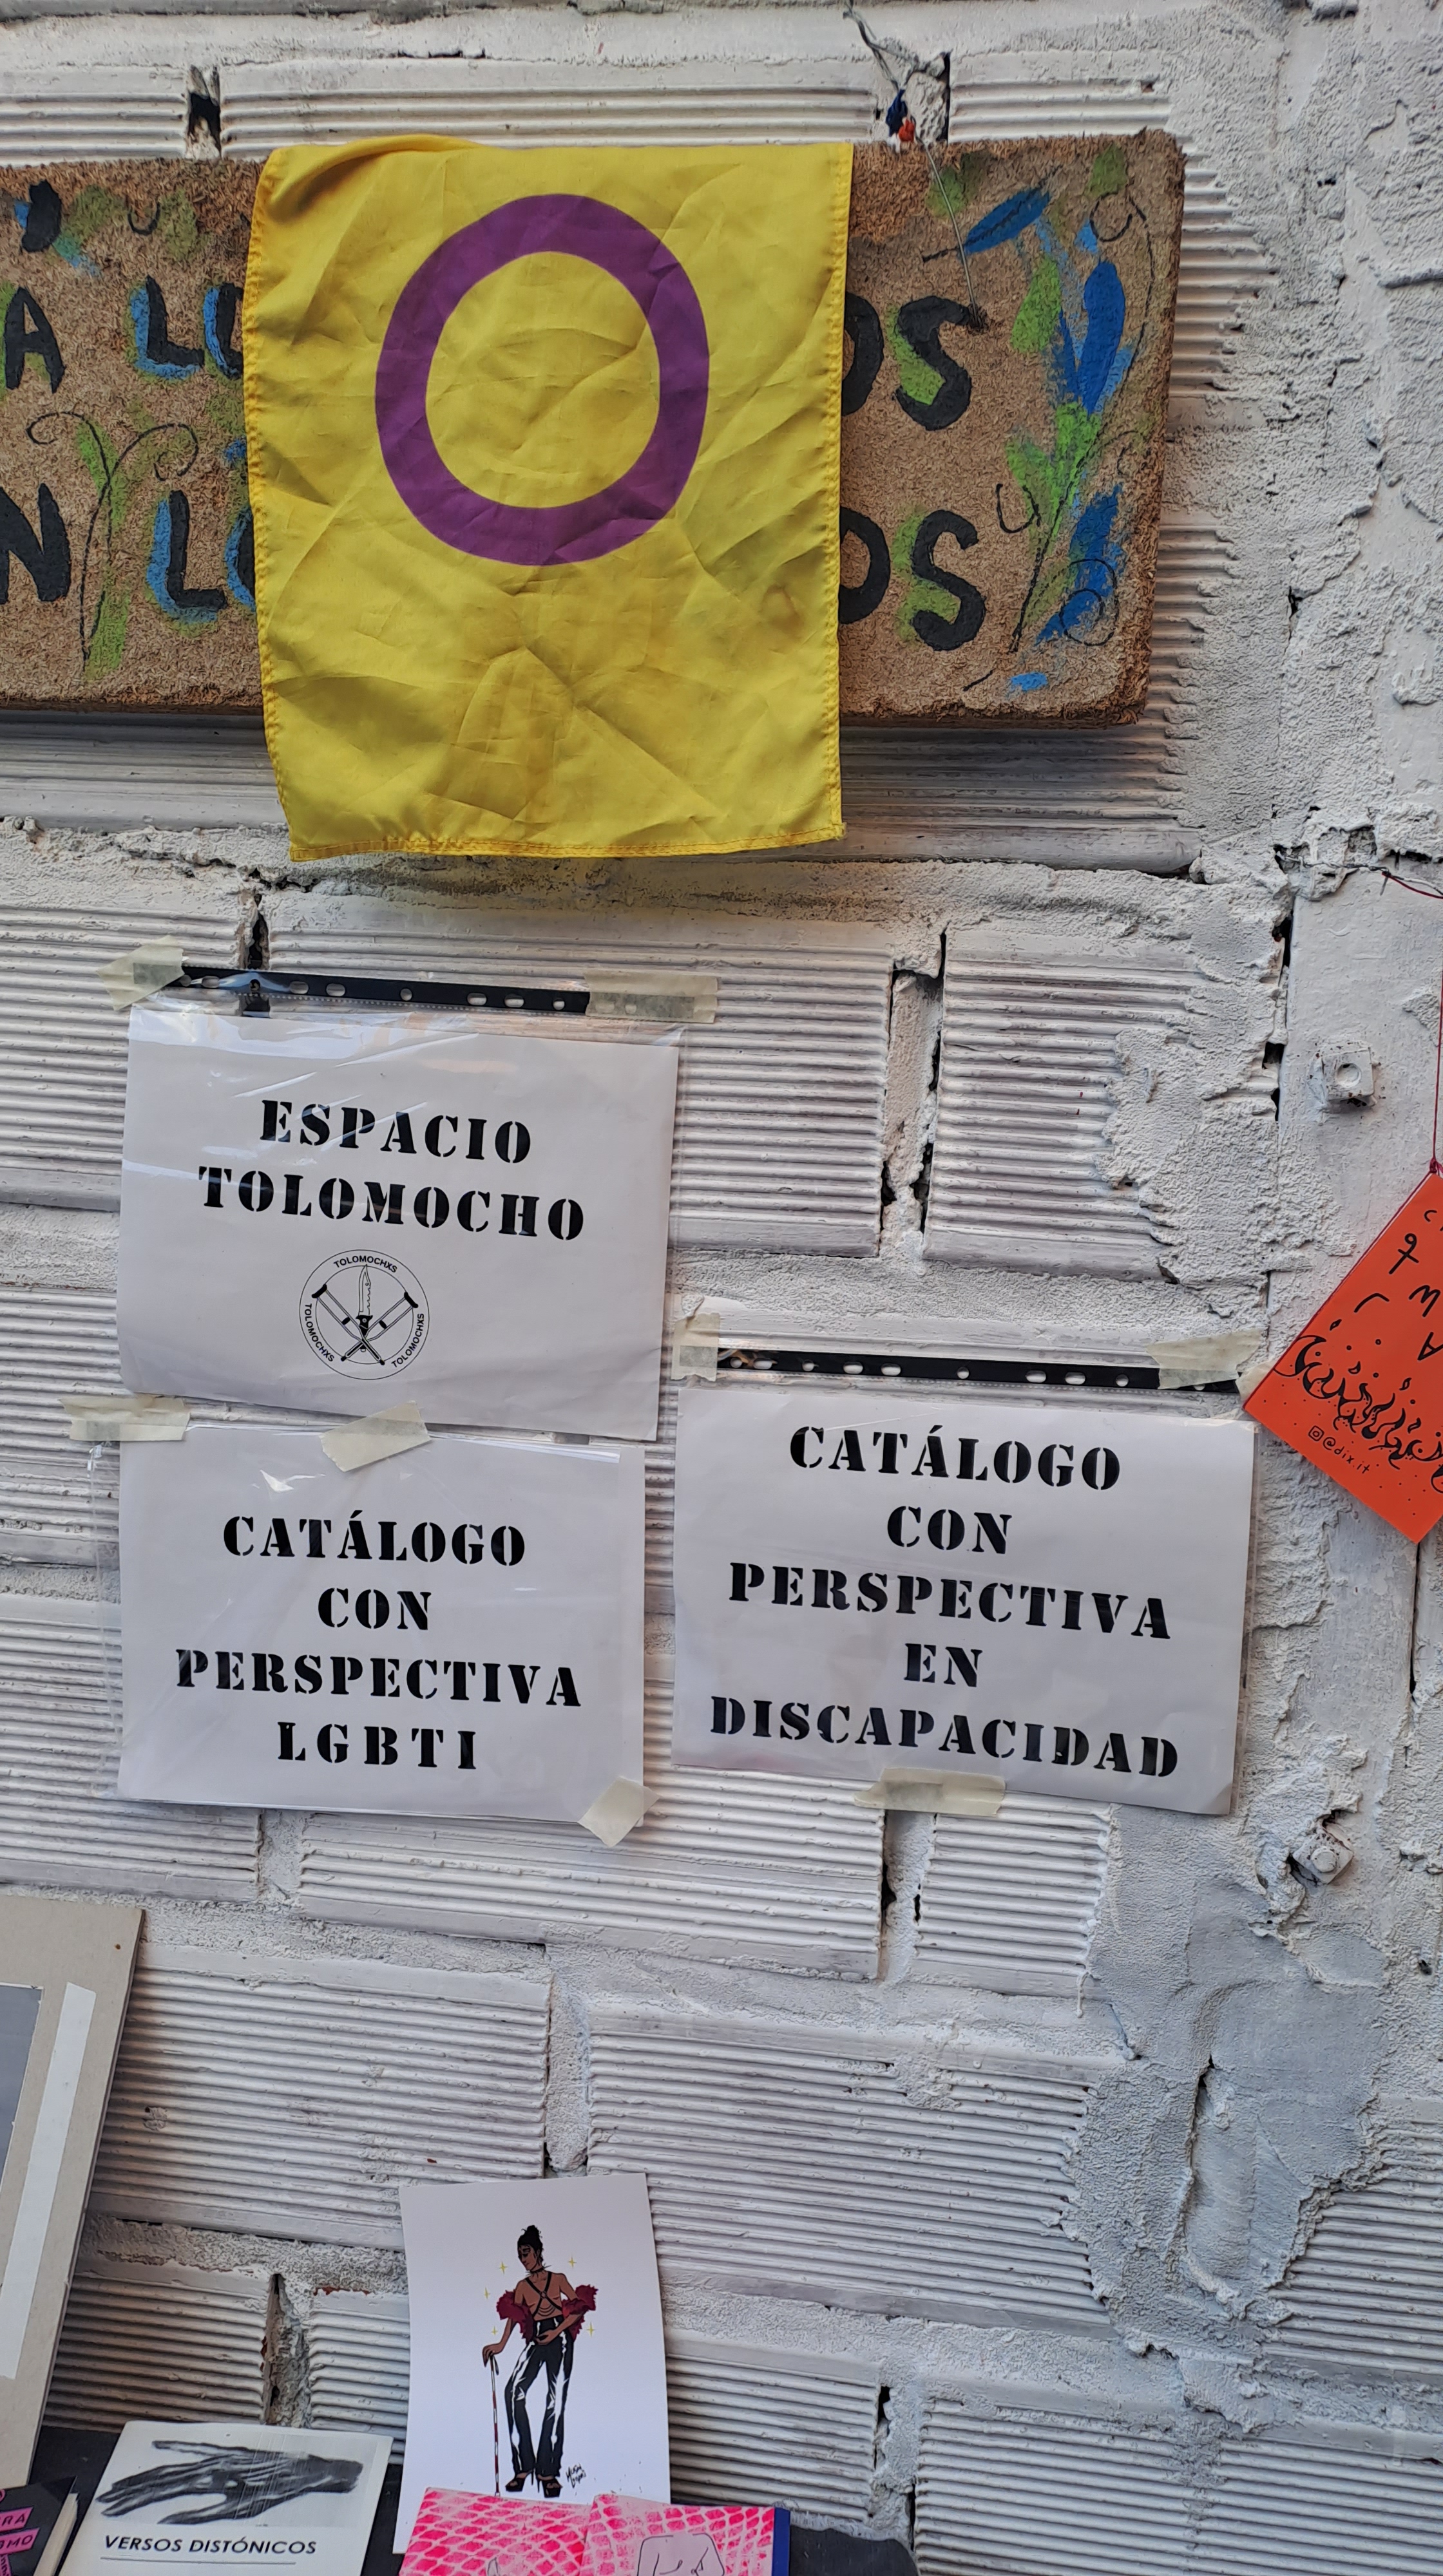 ESPACIO
TOLOMOCHO
TOLOMOCHXS
TOLOMOCHXS
TOLOMOCHXS
CATÁLOGO
CON
PERSPECTIVA
LGBTI
CATÁLOGO
CON
PERSPECTIVA
EN
DISCAPACIDAD
@dix.it
VERSOS DISTÓNICOS